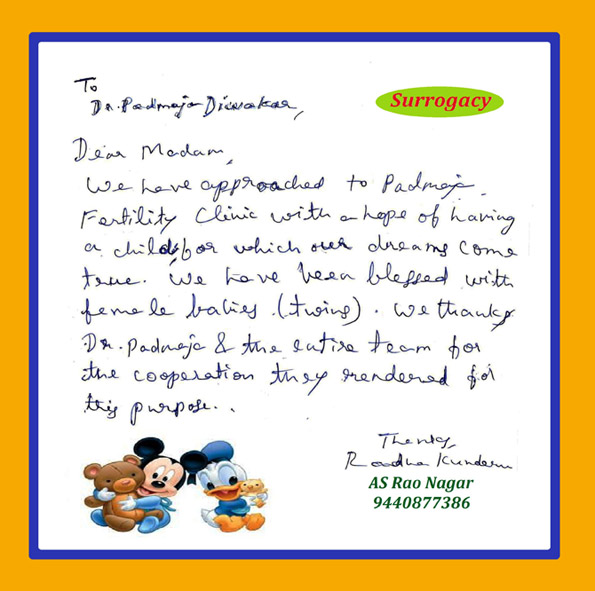 To
Dr. Padmaja Diwakar,
Surrogacy
Dear Madam,
We have approached to Padmaja
Fertility Clinic with a hope of having
a child, for which our dreams come
true. We have been blessed with
female babies (twins). We thanks
Dr. Padmaja & the entire team for
the cooperation they rendered for
this purpose..
Thanks,
Radha
AS Rao Nagar
9440877386